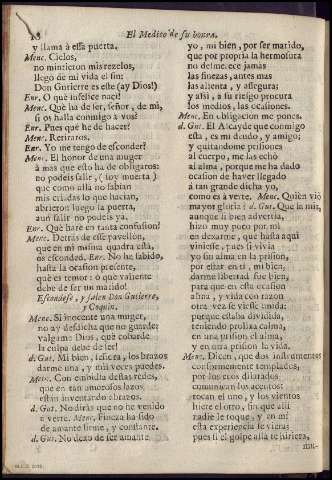 El Medico de su honra.
y llama à essa puerta.
Menc. Cielos,
no mintieron mis rezelos,
llegò de mi vida el fin:
Don Gutierre es este (ay Dios!)
Enr. O què infelice nací!
Menc. Què ha de ser, señor, de mi,
si os halla conmigo à vos?
Enr. Pues què he de hazer?
Menc. Retiraros.
Enr. Yo me tengo de esconder?
Menc. El honor de una muger
à mas que esto ha de obligaros:
no podeis salir, (soy muerta!)
que como allà no sabian
mis criadas lo que hazian,
abrieron luego la puerta,
aun salir no podeis ya.
Enr. Què harè en tanta confusion?
Menc. Detràs de esse pavellon,
que en mi misma quadra està,
os esconded. Enr. No he sabido,
hasta la ocasion presente,
què es temor: ò què valiente
debe de ser un marido!
Escondese, y salen Don Gutierre,
y Coquin.
Menc. Si inocente una muger,
no ay desdicha que no guarde;
valgame Dios, què cobarde
la culpa debe de ser!
d. Gut. Mi bien, señora, los brazos
darme una, y mil vezes puedes.
Menc. Con embidia destas redes,
que en tan amorosos lazos
estàn inventando abrazos.
d. Gut. No diràs que no he venido
à verte. Menc. Fineza ha sido
de amante firme, y constante.
d. Gut. No dexo de ser amante
yo, mi bien, por ser marido,
que por propria la hermosura
no desmerece jamàs
las finezas, antes mas
las alienta, y assegura;
y assi, à su riesgo procura
los medios, las ocasiones.
Menc. En obligacion me pones.
d. Gut. El Alcayde que conmigo
està, es mi deudo, y amigo;
y quitandome prisiones
al cuerpo, me las echò
al alma, porque me ha dado
ocasion de haver llegado
à tan grande dicha yo,
como es à verte. Menc. Quièn viò
mayor gloria? d. Gut. Que la mia,
aunque si bien advertia,
hizo muy poco por mi
en dexarme, que hasta aqui
viniesse, pues si vivia
yo sin alma en la prision,
por estar en ti, mi bien,
darme libertad fue bien,
para que en esta ocasion
alma, y vida con razon
otra vez se viesse unida:
porque estaba dividida,
teniendo prolixa calma,
en una prision el alma,
y en otra prision la vida.
Menc. Dicen, que dos instrumentos
conformemente templados,
por los ecos dilatados
comunican los acentos:
tocan el uno, y los vientos
hiere el otro, sin que alli
nadie le toque, y en mi
esta experiencia se viera;
pues si el golpe allà te hiriera,